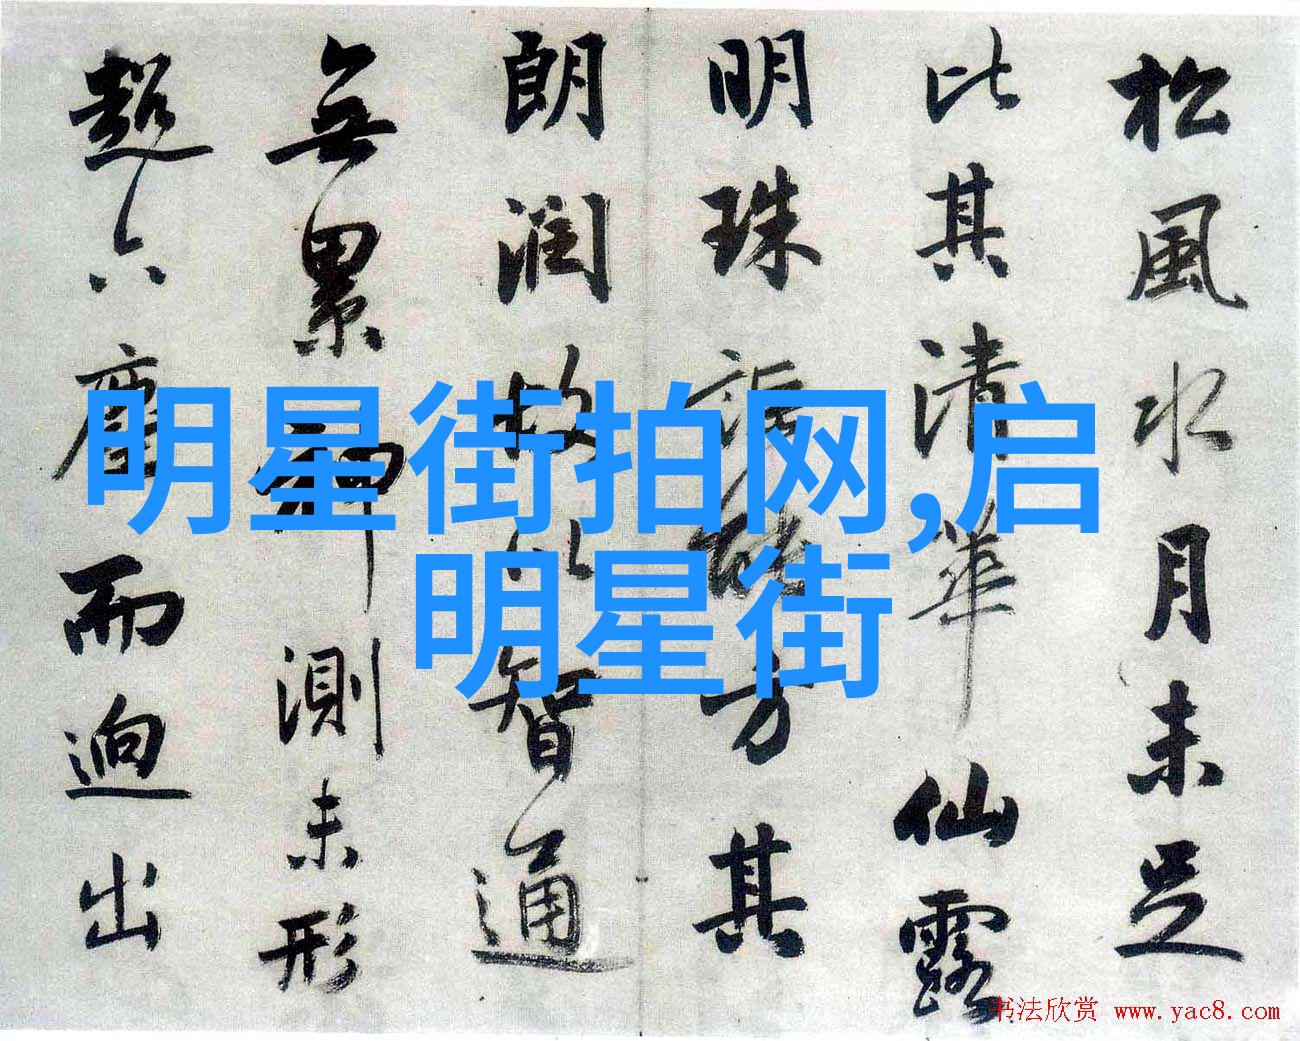 松風水月未足
比其清華仙露
明珠詎能方其
朗潤故以智通
無累神測未形
超六塵而迥出
明星街拍网,启
明星街
书法欣赏 www.yac8.com